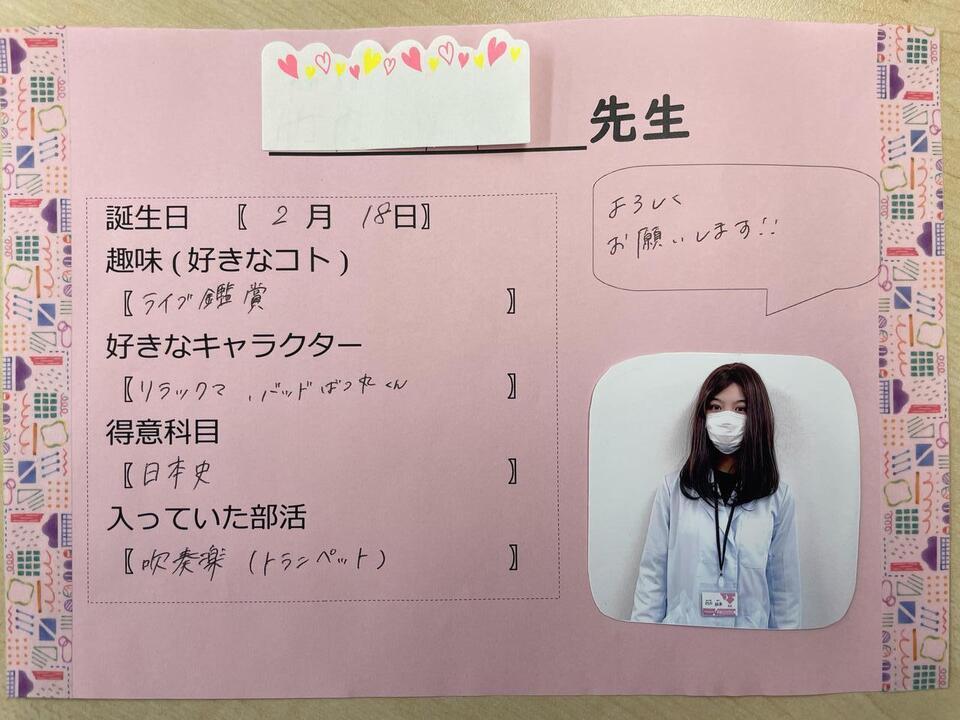 先生
よろしく
お願いします!!
誕生日 〖 2 月 18日〗
趣味 ( 好きなコト )
〖ライブ鑑賞 〗
好きなキャラクター
〖リラックマ 、バッドばつ丸くん 〗
得意科目
〖日本史 〗
入っていた部活
〖吹奏楽 (トランペット) 〗